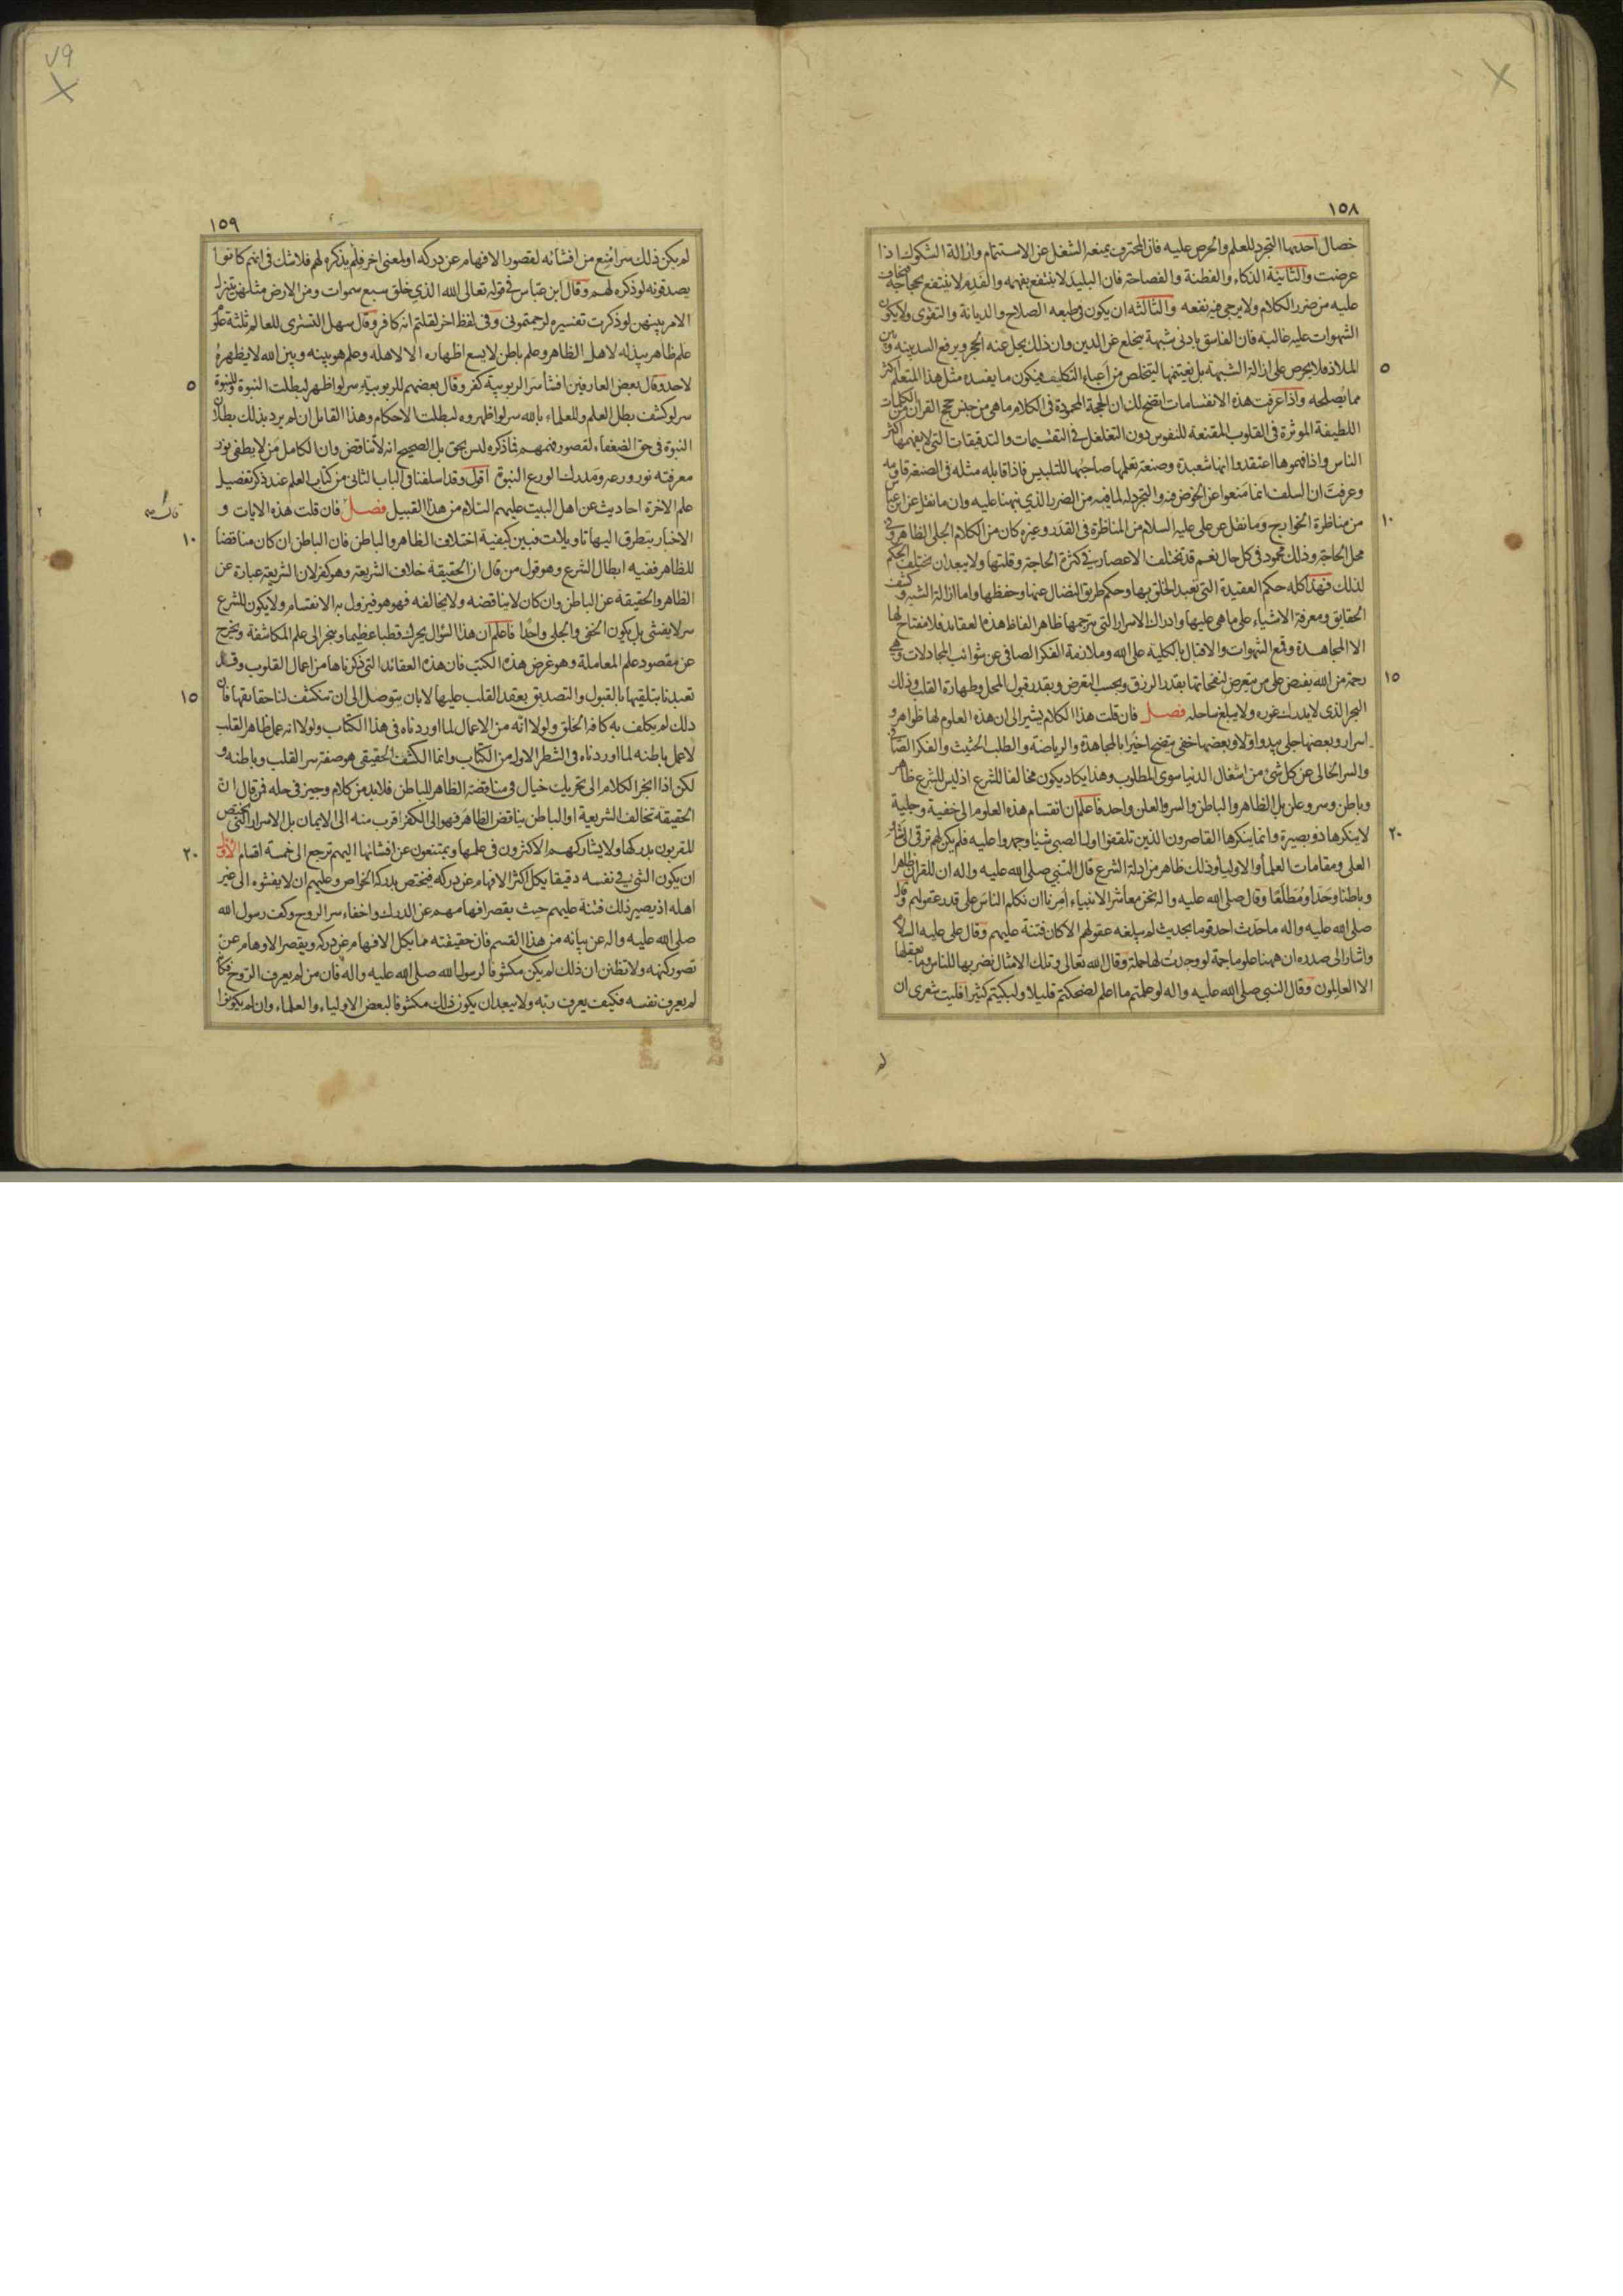 ١٥٨
خصال احديها التجرد للعلم والحرص عليه فان المحترف يمنعه الشغل عن الاستتمام وازالة الشكوك اذا
عرضت والثانية الذكاء والفطنة والفصاحة فان البليد لا ينتفع بفهمه والفدم لا ينتفع بحجاجه فيخاف
عليه من ضرر الكلام ولا يرجى فيه نفعه والثالثه ان يكون في طبعه الصلاح والديانة والتقوى ولا يكون
الشهوات عليه غالبة فان الفاسق بادنى شبهة ينخلع عن الدين وان ذلك يحل عنه الحجر ويرفع السد بينه وبين
الملاذ فلا يحرص على ازالة الشبهة بل يغتنمها ليتخلص من اعباء التكليف فيكون ما يفسده مثل هذا المتعلم اكثر
٥
مما يصلحه واذا عرفت هذه الانقسامات اتضح لك ان الحجة المحمودة في الكلام ما هي من جنس حجج القران من الكلمات
اللطيفة الموثرة في القلوب المقنعة للنفوس دون التغلغل في التقسيمات والتدقيقات التي لا يفهمها اكثر
الناس واذا فهموها اعتقدوا انها شعبدة وصنعة تعلمها صاحبها للتلبيس فاذا قابله مثله في الصنعة قاومه
وعرفت ان السلف انما منعوا عن الخوض فيه والتجرد له لما فيه من الضرر الذي نبهنا عليه وان ما نقل عن ابن عباس
من مناظرة الخوارج وما نقل عن علي عليه السلام من المناظرة في القدر وغيره كان من الكلام الجلي الظاهر وفي
١٠
محل الحاجة وذلك محمود في كل حال نعم قد تختلف الاعصار في كثرة الحاجة وقلتها ولا يبعد ان يختلف الحكم
لذلك فهذا كله حكم العقيدة التي تعبد الخلق بها وحكم طريق النضال عنها وحفظها واما ازالة الشبه وكشف
الحقايق ومعرفة الاشياء على ما هي عليها وادراك الاسرار التي يترجمها ظاهر الفاظ هذه العقايد فلا مفتاح لها
الا المجاهدة وقمع الشهوات والاقبال بالكلية على الله وملازمة الفكر الصافي عن شوائب المجادلات وهي
رحمة من الله يفيض على من يتعرض لنفحاتها بقدر الرزق وبحسب التعرض وبقدر قبول المحل وطهارة القلب وذلك
١٥
البحر الذي لا يدرك غوره ولا يبلغ ساحله فصل فان قلت هذا الكلام يشير الى ان هذه العلوم لها ظواهر و
اسرار وبعضها جلي يبدو اولا وبعضها خفي يتضح اخيرا بالمجاهدة والرياضة والطلب الحثيث والفكر الصافي
والسر الخالي عن كل شئ من اشغال الدنيا سوى المطلوب وهذا يكاد يكون مخالفا للشرع اذ ليس للشرع ظاهر
وباطن وسر وعلن بل الظاهر والباطن والسر والعلن واحد فاعلم ان انقسام هذه العلوم الى خفية وجلية
لا ينكرها ذو بصيرة وانما ينكرها القاصرون الذين تلقفوا اول الصبى شيئا وجمدوا عليه فلم يكن لهم ترقى الى شأو
٢٠
العلى ومقامات العلماء والاولياء وذلك ظاهر من ادلة الشرع قال النبي صلى الله عليه واله ان للقران ظاهرا
وباطنا وحدا ومطلعا وقال صلى الله عليه واله نحن معاشر الانبياء امرنا ان نكلم الناس على قدر عقولهم وقال
صلى الله عليه واله ما حدث احد قوما بحديث لم يبلغه عقولهم الا كان فتنة عليهم وقال علي عليه السلام
واشار الى صدره ان ههنا علوما جمة لو وجدت لها حملة وقال الله تعالى وتلك الامثال نضربها للناس وما يعقلها
الا العالمون وقال النبي صلى الله عليه واله لو علمتم ما اعلم لضحكتم قليلا ولبكيتم كثيرا فليت شعرى ان
١٥٩
لم يكن ذلك سرا منع من افشائه لقصور الافهام عن دركه او لمعنى اخر فلم يذكره لهم فلا شك في انهم كانوا
يصدقونه لو ذكره لهم وقال ابن عباس في قوله تعالى الله الذي خلق سبع سموات ومن الارض مثلهن يتنزل
الامر بينهن لو ذكرت تفسيره لرجمتموني وفي لفظ اخر لقلتم انه كافر وقال سهل التستري للعالم ثلثة علوم
علم ظاهر يبذله لاهل الظاهر وعلم باطن لا يسع اظهاره الا لاهله وعلم هو بينه وبين الله لا يظهره
لاحد وقال بعض العارفين افشاء سر الربوبية كفر وقال بعضهم للربوبية سر لو اظهر لبطلت النبوة وللنبوة
٥
سر لو كشف بطل العلم وللعلماء بالله سر لو اظهروه لبطلت الاحكام وهذا القايل ان لم يرد بذلك بطلان
النبوة في حق الضعفاء لقصور فهمهم فما ذكره ليس بحق بل الصحيح انه لا تناقض وان الكامل من لا يطفي نور
معرفته نور ورعه ومدرك الورع النبوة اقول وقد اسلفنا في الباب الثاني من كتاب العلم عند ذكر تفصيل
علم الاخرة احاديث عن اهل البيت عليهم السلام من هذا القبيل فصل فان قلت هذه الايات و
الاخبار يتطرق اليها تاويلات فبين كيفية اختلاف الظاهر والباطن فان الباطن ان كان مناقضا
١٠
للظاهر ففيه ابطال الشرع وهو قول من قال ان الحقيقة خلاف الشريعة وهو كفر لان الشريعة عبارة عن
الظاهر والحقيقة عن الباطن وان كان لا يناقضه ولا يخالفه فهو هو فيزول به الانقسام ولا يكون للشرع
سر لا يفشى بل يكون الخفي والجلي واحدا فاعلم ان هذا السؤال يحرك قطبا عظيما وينجر الى علم المكاشفة ويخرج
عن مقصود علم المعاملة وهو غرض هذه الكتب فان هذه العقائد التي ذكرناها من اعمال القلوب وقد
تعبدنا بتلقيها بالقبول والتصديق بعقد القلب عليها لا بان يتوصل الى ان تنكشف لنا حقايقها فان
١٥
ذلك لم يكلف به كافة الخلق ولولا انه من الاعمال لما اوردناه في هذا الكتاب ولولا انه عمل ظاهر القلب
لا عمل باطنه لما اوردناه في الشطر الاول من الكتاب وانما الكشف الحقيقي هو صفة سر القلب وباطنه و
لكن اذا انجر الكلام الى تحريك خيال في مناقضة الظاهر للباطن فلا بد من كلام وجيز في حله فمن قال ان
الحقيقة تخالف الشريعة او الباطن يناقض الظاهر فهو الى الكفر اقرب منه الى الايمان بل الاسرار التي يختص
المقربون بدركها ولا يشاركهم الاكثرون في علمها ويمتنعون عن افشائها اليهم ترجع الى خمسة اقسام الاول
٢٠
ان يكون الشئ في نفسه دقيقا يكل اكثر الافهام عن دركه فيختص بدركه الخواص وعليهم ان لا يفشوه الى غير
اهله اذ يصير ذلك فتنة عليهم حيث يقصر افهامهم عن الدرك واخفاء سر الروح وكف رسول الله
صلى الله عليه واله عن بيانه من هذا القسم فان حقيقته مما يكل الافهام عن دركه ويقصر الاوهام عن
تصور كنهه ولا تظنن ان ذلك لم يكن مكشوفا لرسول الله صلى الله عليه واله فان من لم يعرف الروح فكانه
لم يعرف نفسه فكيف يعرف ربه ولا يبعد ان يكون ذلك مكشوفا لبعض الاولياء والعلماء وان لم يكونوا
٧٩